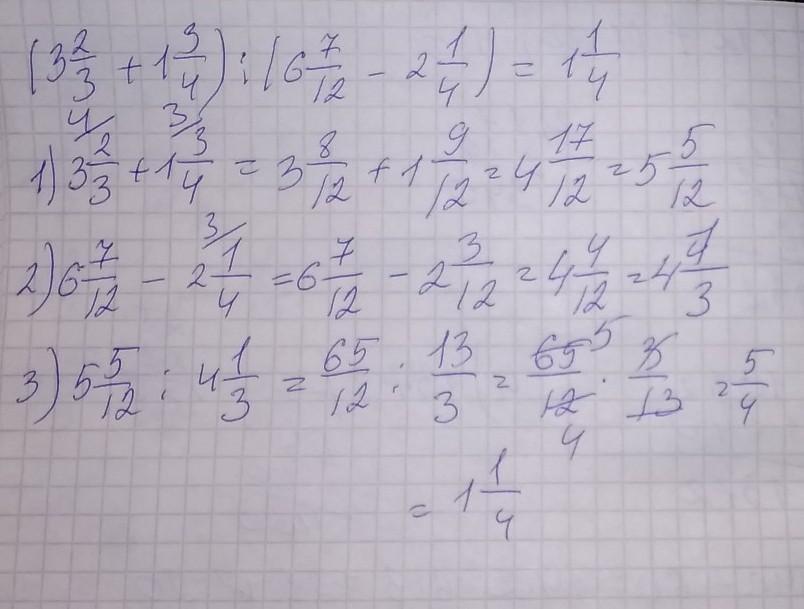 (3 2/3 + 1 3/4) : (6 7/12 - 2 1/4) = 1 1/4
4/ 3/
1) 3 2/3 + 1 3/4 = 3 8/12 + 1 9/12 = 4 17/12 = 5 5/12
3/
2) 6 7/12 - 2 1/4 = 6 7/12 - 2 3/12 = 4 4/12 = 4 1/3
3) 5 5/12 : 4 1/3 = 65/12 : 13/3 = 65 5/12 4 · 3/13 = 5/4
= 1 1/4